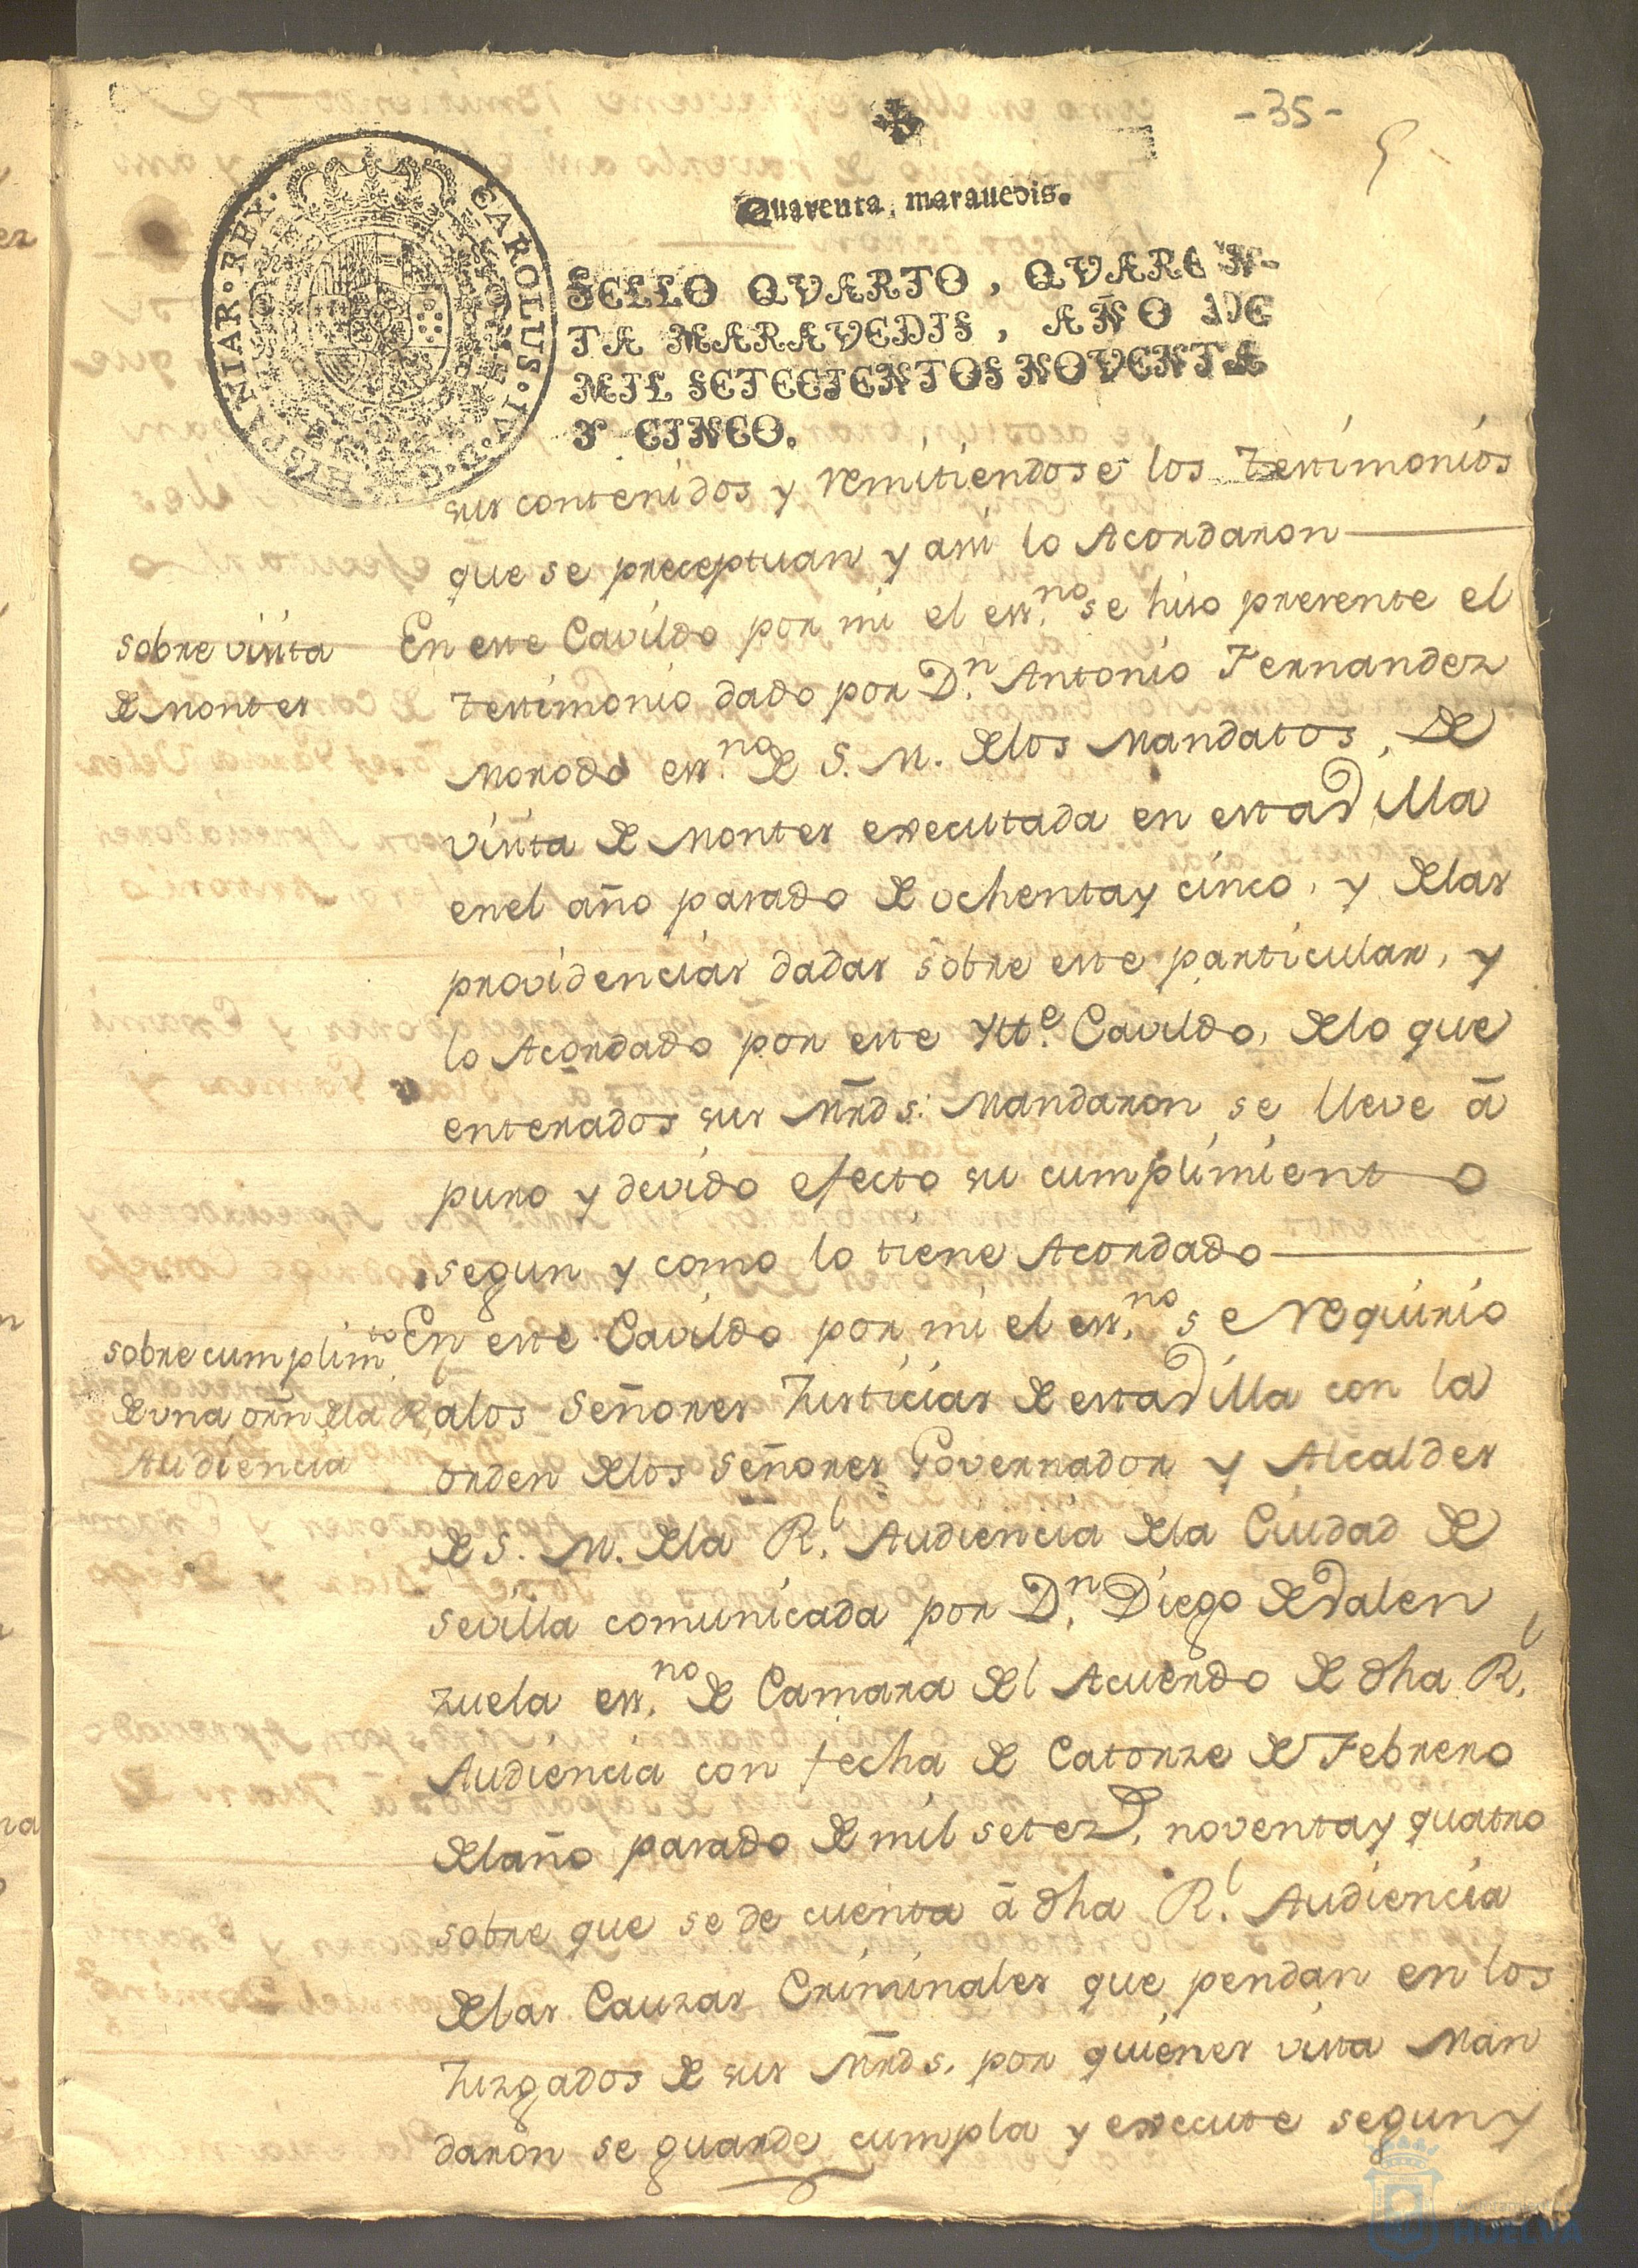 -35-
Quarenta, marauedis.
CAROLUS·IV·D·G·HISPANIAR·REX·
SELLO QVARTO, QVAREN-
TA MARAVEDIS, AÑO DE
MIL SETECIENTOS NOVENTA
Y CINCO.
sus contenidos y remitiendose los testimonios
que se preceptuan y asi lo Acordaron
sobre visita
de Montes
En este Cavildo por mi el ess.no se hiso presente el
testimonio dado por D.n Antonio Fernandez
Morodo ess.no de S. M. delos Mandatos, de
visita de Montes executada en esta Villa
enel año pasado de ochentay cinco, y delas
providencias dadas sobre este particular, y
lo Acordado por este Ytt.e Cavildo, delo que
enterados sus Mrds. Mandaron se lleve â
puro y devido efecto su cumplimiento
segun y como lo tiene Acordado
sobre cumplim.to
de una orñ dela R.
Audiencia
En este Cavildo por mi el ess.no se requirio
alos Señores Justicias de esta Villa con la
orden delos Señores Governador y Alcaldes
de S. M. dela R.l Audiencia dela Ciudad de
Sevilla comunicada por D.n Diego de Valen
zuela ess.no de Camara del Acuerdo de dha R.l
Audiencia con fecha de Catorze de Febrero
delaño pasado de mil setez.s noventay quatro
sobre que se de cuenta â dha R.l Audiencia
delas Cauzas Criminales que pendan en los
Juzgados de sus Mrds. por quienes vista Man
daron se guarde cumpla y execute segun y
HUELVA